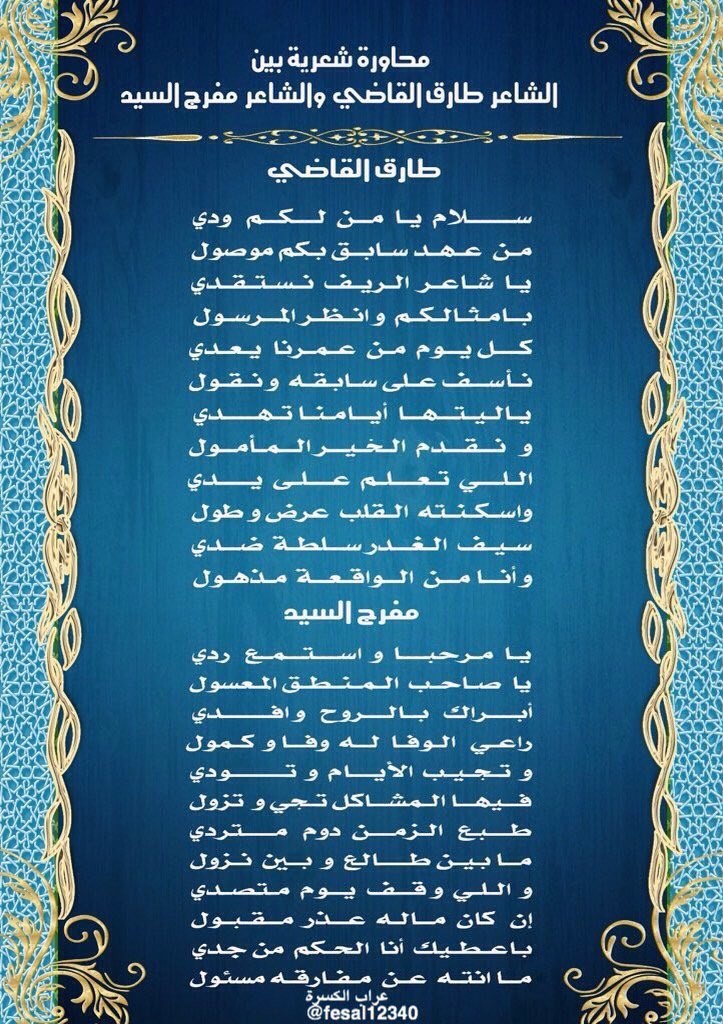 محاورة شعرية بين
الشاعر طارق القاضي والشاعر مفرح السيد
طارق القاضي
سلام يا من لكم ودي
من عهد سابق بكم موصول
يا شاعر الريف نستقدي
بامثالكم وانظر المرسول
كل يوم من عمرنا يعدي
نأسف على سابقه ونقول
ياليتها أيامنا تهدي
و نقدم الخير المأمول
اللي تعلم على يدي
واسكنته القلب عرض و طول
سيف الغدر سلطة ضدي
وأنا من الواقعة مذهول
مفرح السيد
يا مرحبا و استمع ردي
يا صاحب المنطق المعسول
أبراك بالروح وافدي
راعي الوفا له وفا و كمول
و تجيب الأيام و تودي
فيها المشاكل تجي و تزول
طبع الزمن دوم متردي
ما بين طالع و بين نزول
و اللي وقف يوم متصدي
إن كان ماله عذر مقبول
باعطيك أنا الحكم من جدي
ما انته عن مفارقه مسئول
عراب الكسرة
@fesal12340